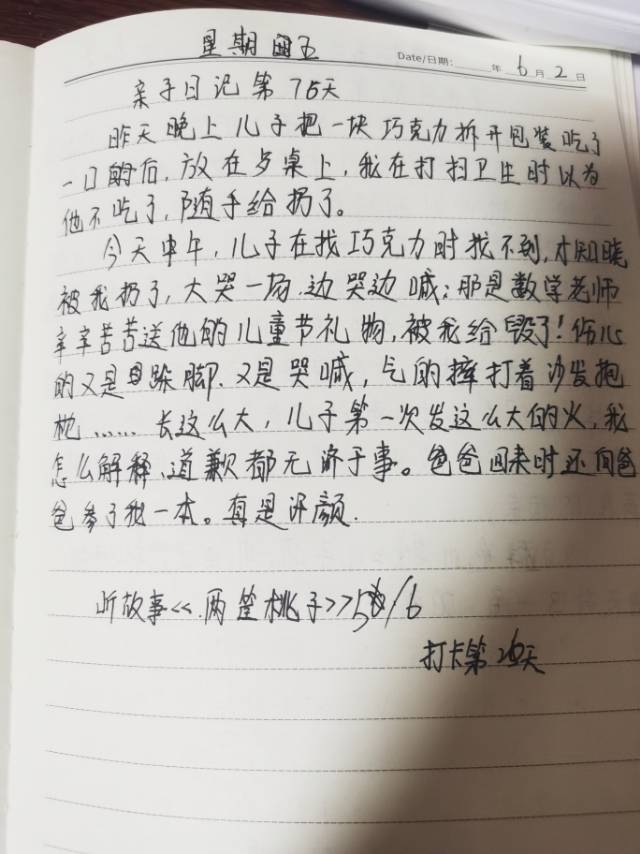 星期五
Date/日期: 年 6 月 2 日
亲子日记第75天
昨天晚上儿子把一块巧克力拆开包装吃了
一口后,放在夕桌上,我在打扫卫生时以为
他不吃了,随手给扔了。
今天中午,儿子在找巧克力时找不到,才知晓
被我扔了,大哭一场.边哭边喊:那是数学老师
辛辛苦苦送他的儿童节礼物,被我给毁了!伤心
的又是跺脚.又是哭喊,气的摔打着沙发抱
枕......长这么大,儿子第一次发这么大的火,我
怎么解释、道歉都无济于事。爸爸回来时还向爸
爸参了我一本。真是汗颜.
听故事<<两筐桃子>>5/6
打卡第 天